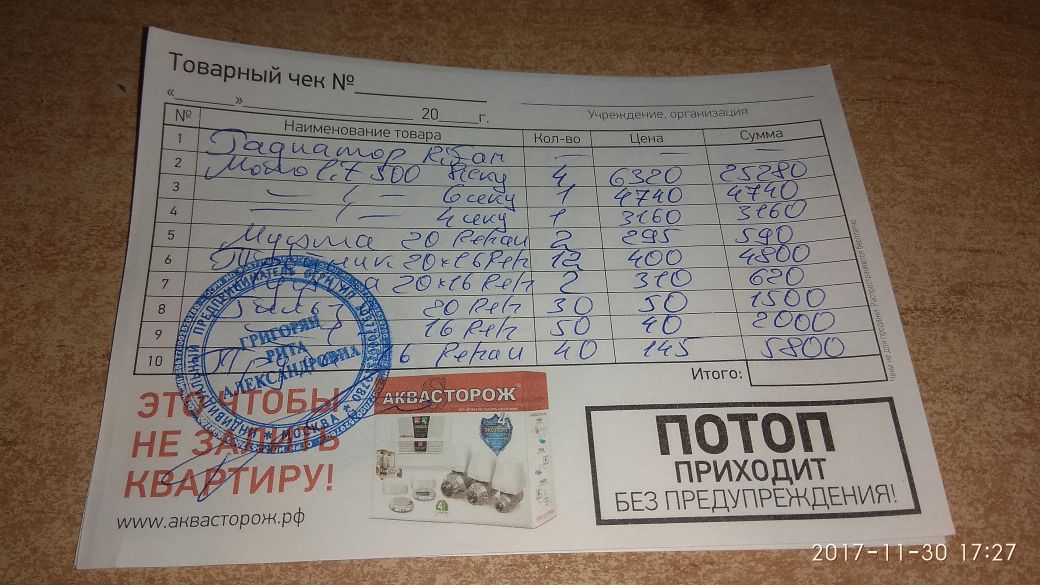 Товарный чек №
« » 20 г.
Учреждение, организация
№ Наименование товара Кол-во Цена Сумма
1 Радиатор Rifar — — —
2 Monolit 500 8секц 4 6320 25280
3 — " — 6секц 1 4740 4740
4 — " — 4секц 1 3160 3160
5 Муфта 20 Rehau 2 295 590
6 Тройник 20х16 Reh 12 400 4800
7 20х16 Reh 2 310 620
8 Гильз 20 Reh 30 50 1500
9 16 Reh 50 40 2000
10 16 Rehau 40 145 5800
Итого:
ИНДИВИДУАЛЬНЫЙ ПРЕДПРИНИМАТЕЛЬ
ГРИГОРЯН
РИТА
АЛЕКСАНДРОВНА
МОСКВА
ЭТО ЧТОБЫ
НЕ ЗАЛИТЬ
КВАРТИРУ!
www.аквасторож.рф
АКВАСТОРОЖ
ЭКСПЕРТ
ПОТОП
ПРИХОДИТ
БЕЗ ПРЕДУПРЕЖДЕНИЯ!
2017-11-30 17:27